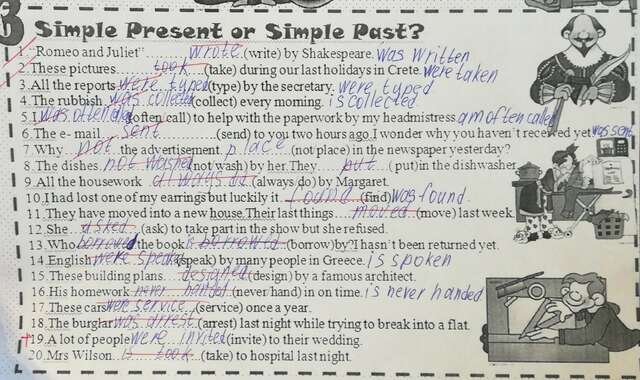 3 Simple Present or Simple Past?
1. "Romeo and Juliet" wrote (write) by Shakespeare. was written
2. These pictures took (take) during our last holidays in Crete. were taken
3. All the reports were typed (type) by the secretary. were typed
4. The rubbish was collected (collect) every morning. is collected
5. I was often (often/call) to help with the paperwork by my headmistress am often called
6. The e-mail sent (send) to you two hours ago. I wonder why you haven't received yet was sent
7. Why not the advertisement place (not/place) in the newspaper yesterday?
8. The dishes not washed (not/wash) by her. They put (put) in the dishwasher.
9. All the housework always (always/do) by Margaret.
10. I had lost one of my earrings but luckily it found (find) was found.
11. They have moved into a new house. Their last things moved (move) last week.
12. She asked (ask) to take part in the show but she refused.
13. Who borrowed the book is borrowed (borrow) by? I hasn't been returned yet.
14. English were speak (speak) by many people in Greece. is spoken
15. These building plans designed (design) by a famous architect.
16. His homework never handed (never/hand) in on time. is never handed
17. These cars were service (service) once a year.
18. The burglar was arrest (arrest) last night while trying to break into a flat.
19. A lot of people were invited (invite) to their wedding.
20. Mrs Wilson is took (take) to hospital last night.